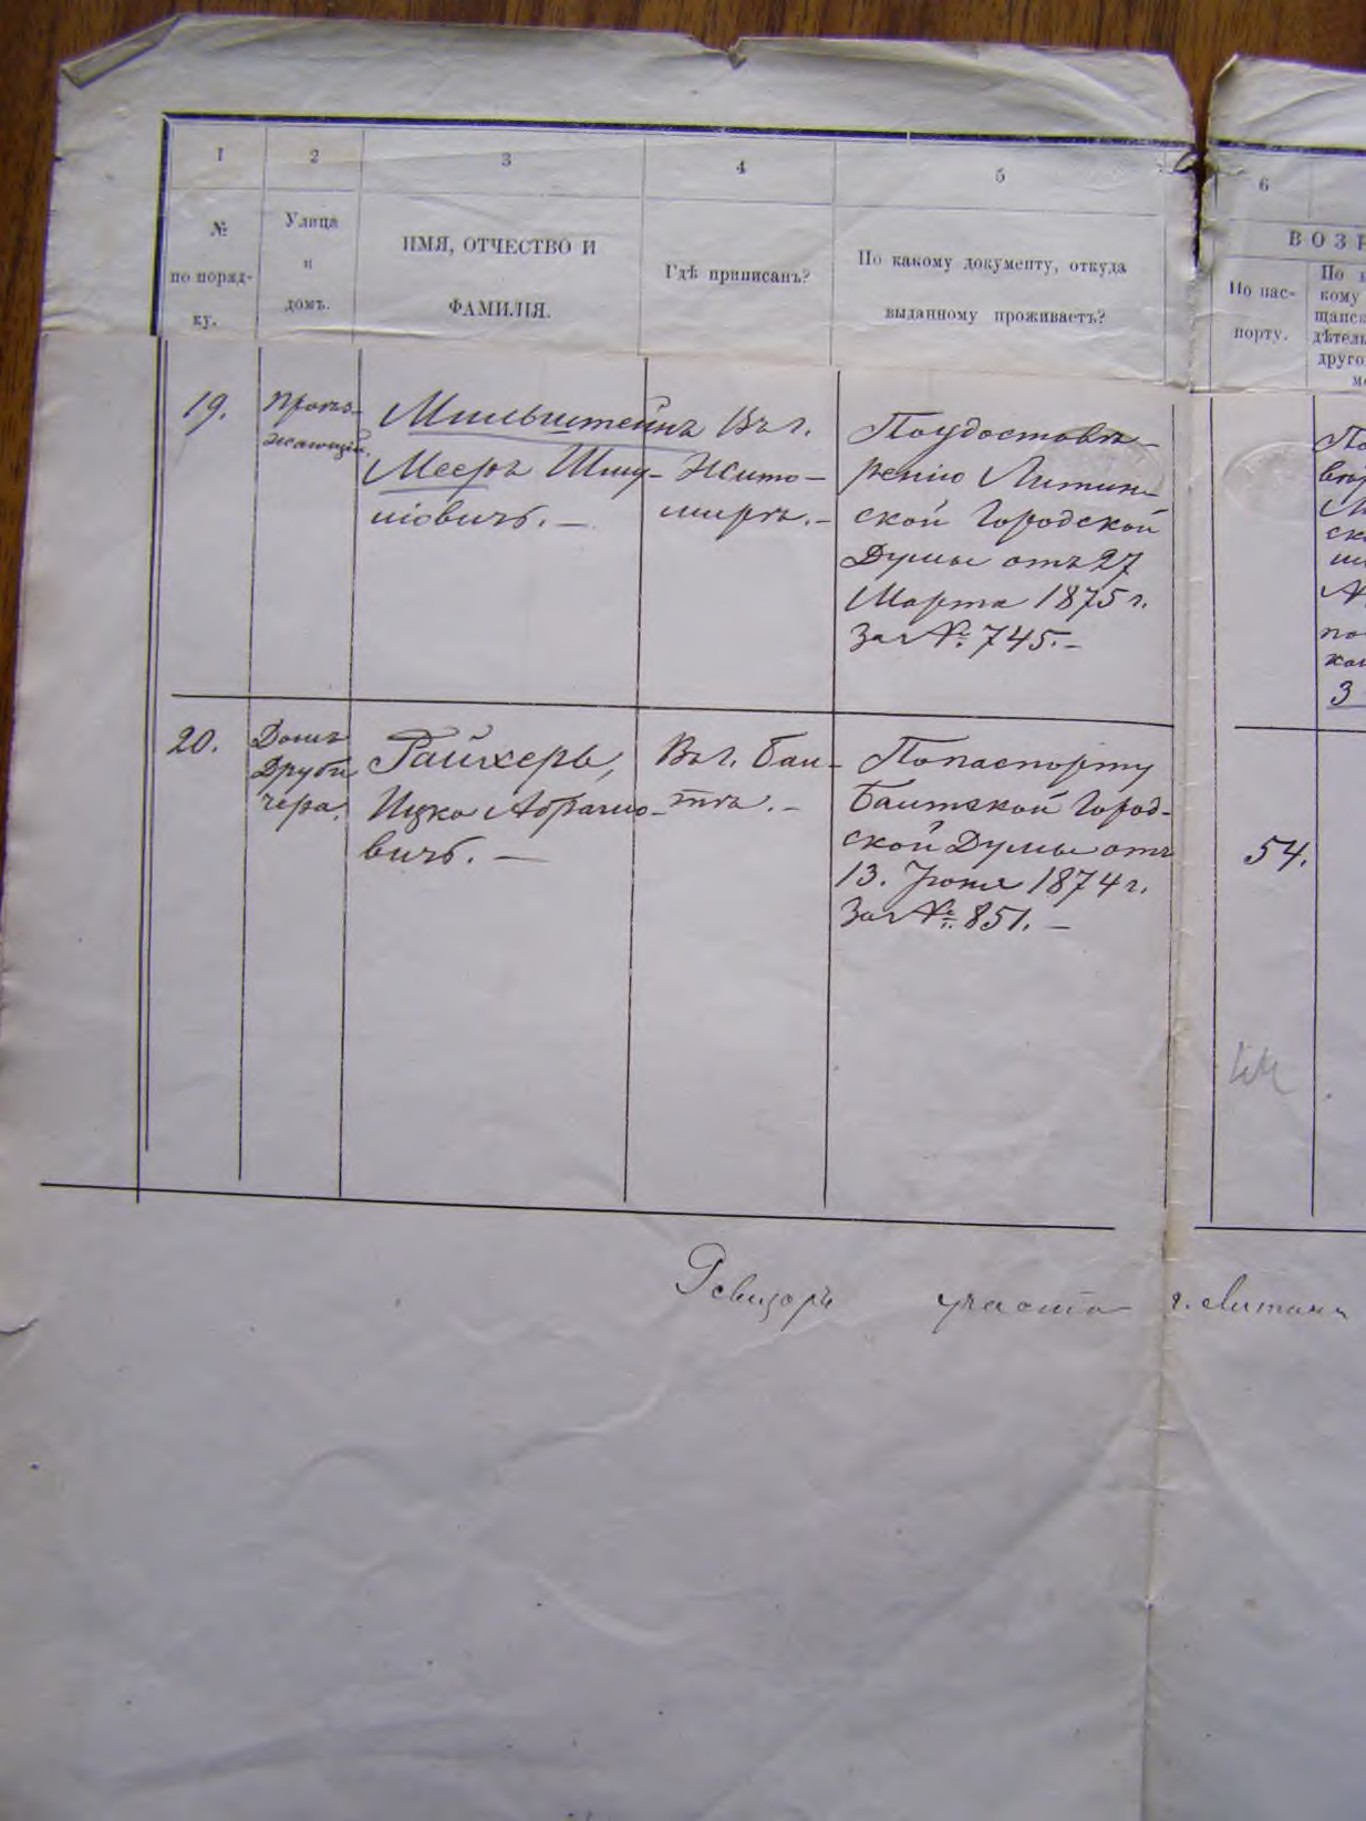 1 2 3 4 5 6
№ по поряд- ку.
Улица и домъ.
ИМЯ, ОТЧЕСТВО И
ФАМИЛІЯ.
Гдѣ приписанъ?
По какому документу, откуда
выданному проживаетъ?
ВОЗР
По пас-
порту.
По к
кому
щанск
дѣтел
друго
19.
Проѣз-
жающій.
Мильштейнъ
Мееръ Шму-
ліовичъ. —
Въ г.
Жито-
мирѣ. —
По удостовѣ-
ренію Литин-
ской Городской
Думы отъ 27
Марта 1875 г.
За № 745. —
20.
Домъ
Друби
чера.
Райхеръ,
Ицко Абрамо-
вичъ. —
Въ г. Бал-
тѣ. —
По паспорту
Балтской Город-
ской Думы отъ
13. Іюня 1874 г.
За № 851. —
54.
Ревизоръ участка г. Литина